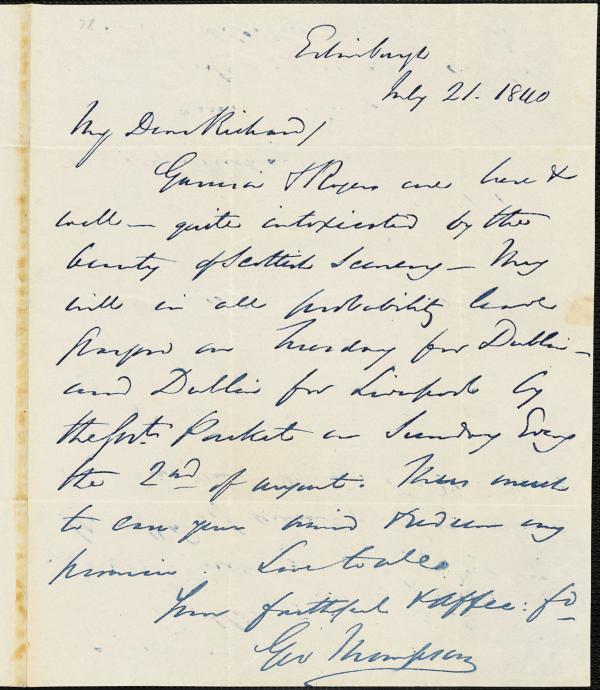 Edinburgh
July 21. 1840
My Dear Richard/
Garrison & Rogers are here &
well — quite intoxicated by the
beauty of Scottish Scenery — They
will in all probability leave
Glasgow on Thursday for Dublin —
and Dublin for Liverpool by
the Govt. Packet on Sunday Eveng
the 2nd of August. Thus much
to ease your mind & redeem my
promise. Love to all
Your faithful & affec: fd
Geo Thompson